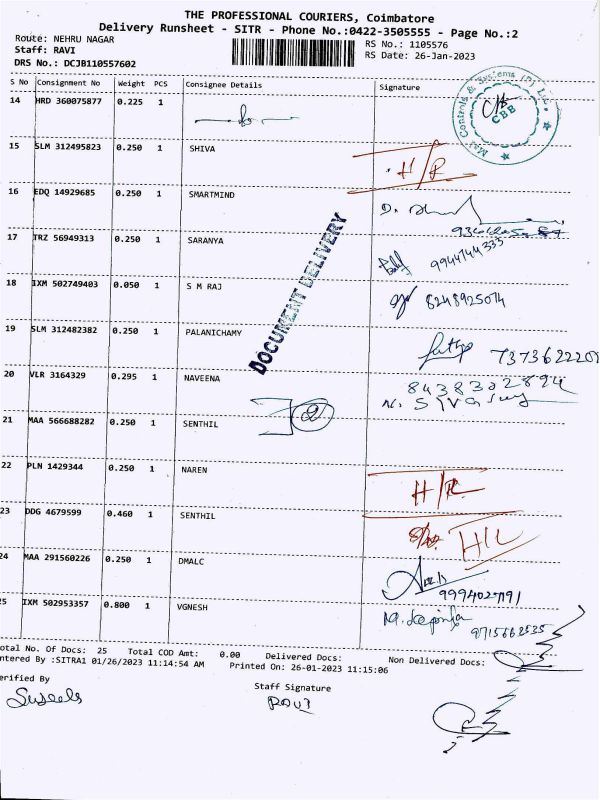 THE PROFESSIONAL COURIERS, Coimbatore
Delivery Runsheet - SITR - Phone No.:0422-3505555 - Page No.:2
Route: NEHRU NAGAR
RS No.: 1105576
Staff: RAVI
RS Date: 26-Jan-2023
DRS No.: DCJB110557602
S No Consignment No Weight PCS Consignee Details Signature
14 HRD 360075877 0.225 1
CBB
15 SLM 312495823 0.250 1 SHIVA H/R
16 EDQ 14929685 0.250 1 SMARTMIND
17 TRZ 56949313 0.250 1 SARANYA 9944744335
18 IXM 502749403 0.050 1 S M RAJ 6248925074
DOCUMENT DELIVERY
19 SLM 312482382 0.250 1 PALANICHAMY 7373622207
20 VLR 3164329 0.295 1 NAVEENA 8438322894
21 MAA 566688282 0.250 1 SENTHIL
22 PLN 1429344 0.250 1 NAREN H/R
23 DDG 4679599 0.460 1 SENTHIL
24 MAA 291560226 0.250 1 DMALC
25 IXM 502953357 0.800 1 VGNESH 9715662535
otal No. Of Docs: 25 Total COD Amt: 0.00 Delivered Docs: Non Delivered Docs:
ntered By :SITRA1 01/26/2023 11:14:54 AM Printed On: 26-01-2023 11:15:06
erified By
Staff Signature
Suseela
RAVI